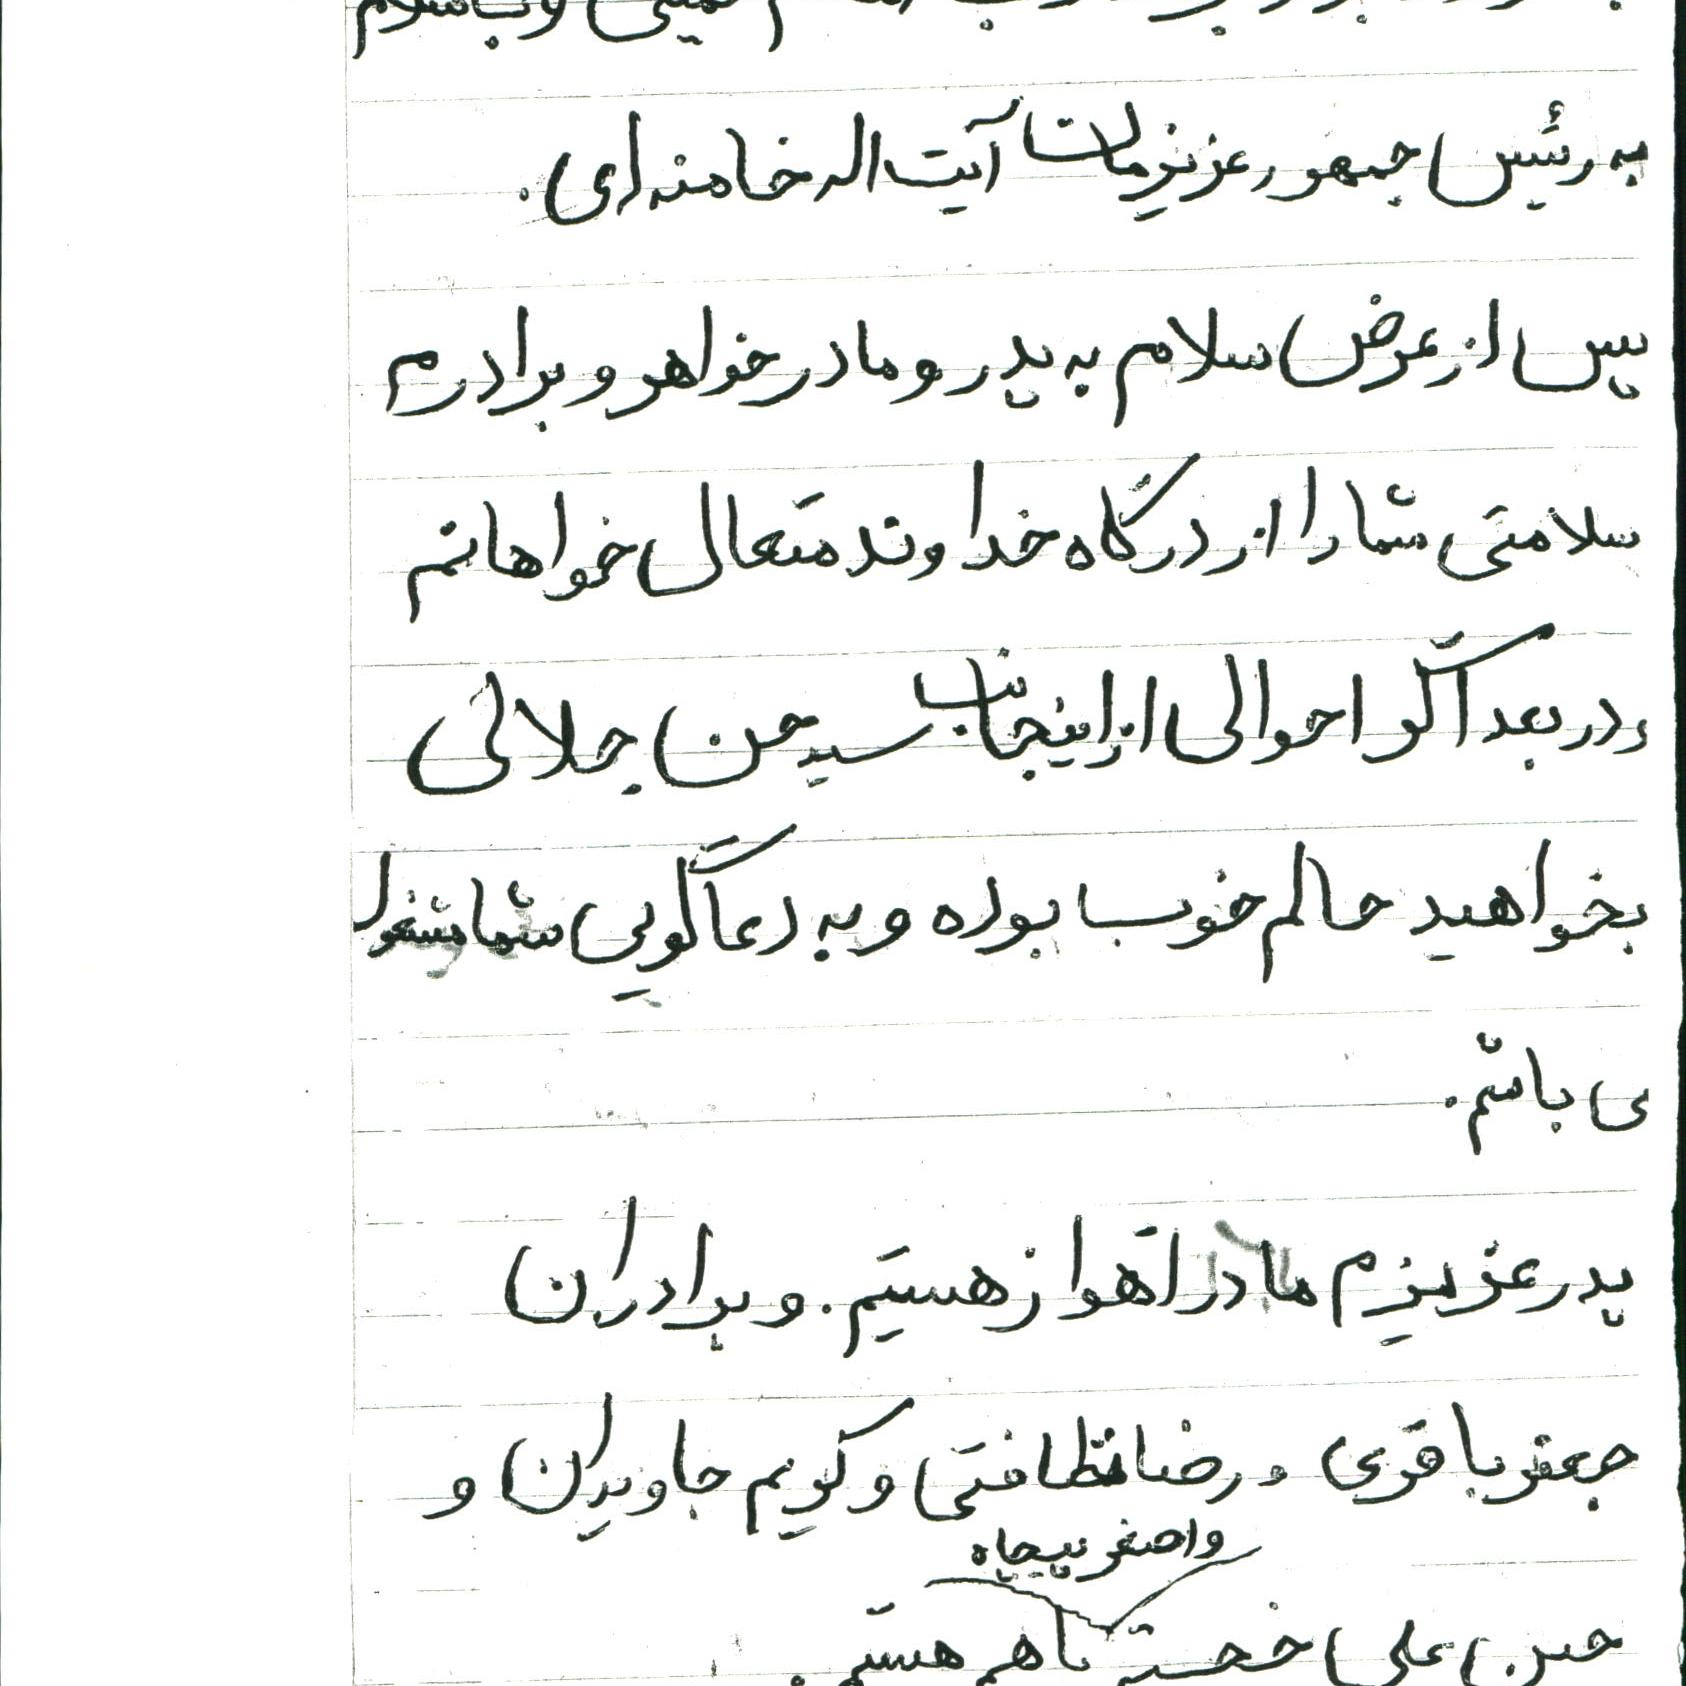 خمینی و با سلام
به رئیس جمهور عزیزمان آیت اله خامنه ای.
پس از عرض سلام به پدر و مادر خواهر و برادرم
سلامتی شما را از درگاه خداوند متعال خواهانم
و در بعد اگر احوالی از اینجانب سید حسن جلالی
بخواهید حالم خوب بوده و به دعاگویی شما مشغول
می باشم.
پدر عزیزم ما در اهواز هستیم. و برادران
جعفر باقری و رضا نظافتی و کریم جاویدان و
و اصغر پیچاه
حسن علی خجسته باهم هستیم.